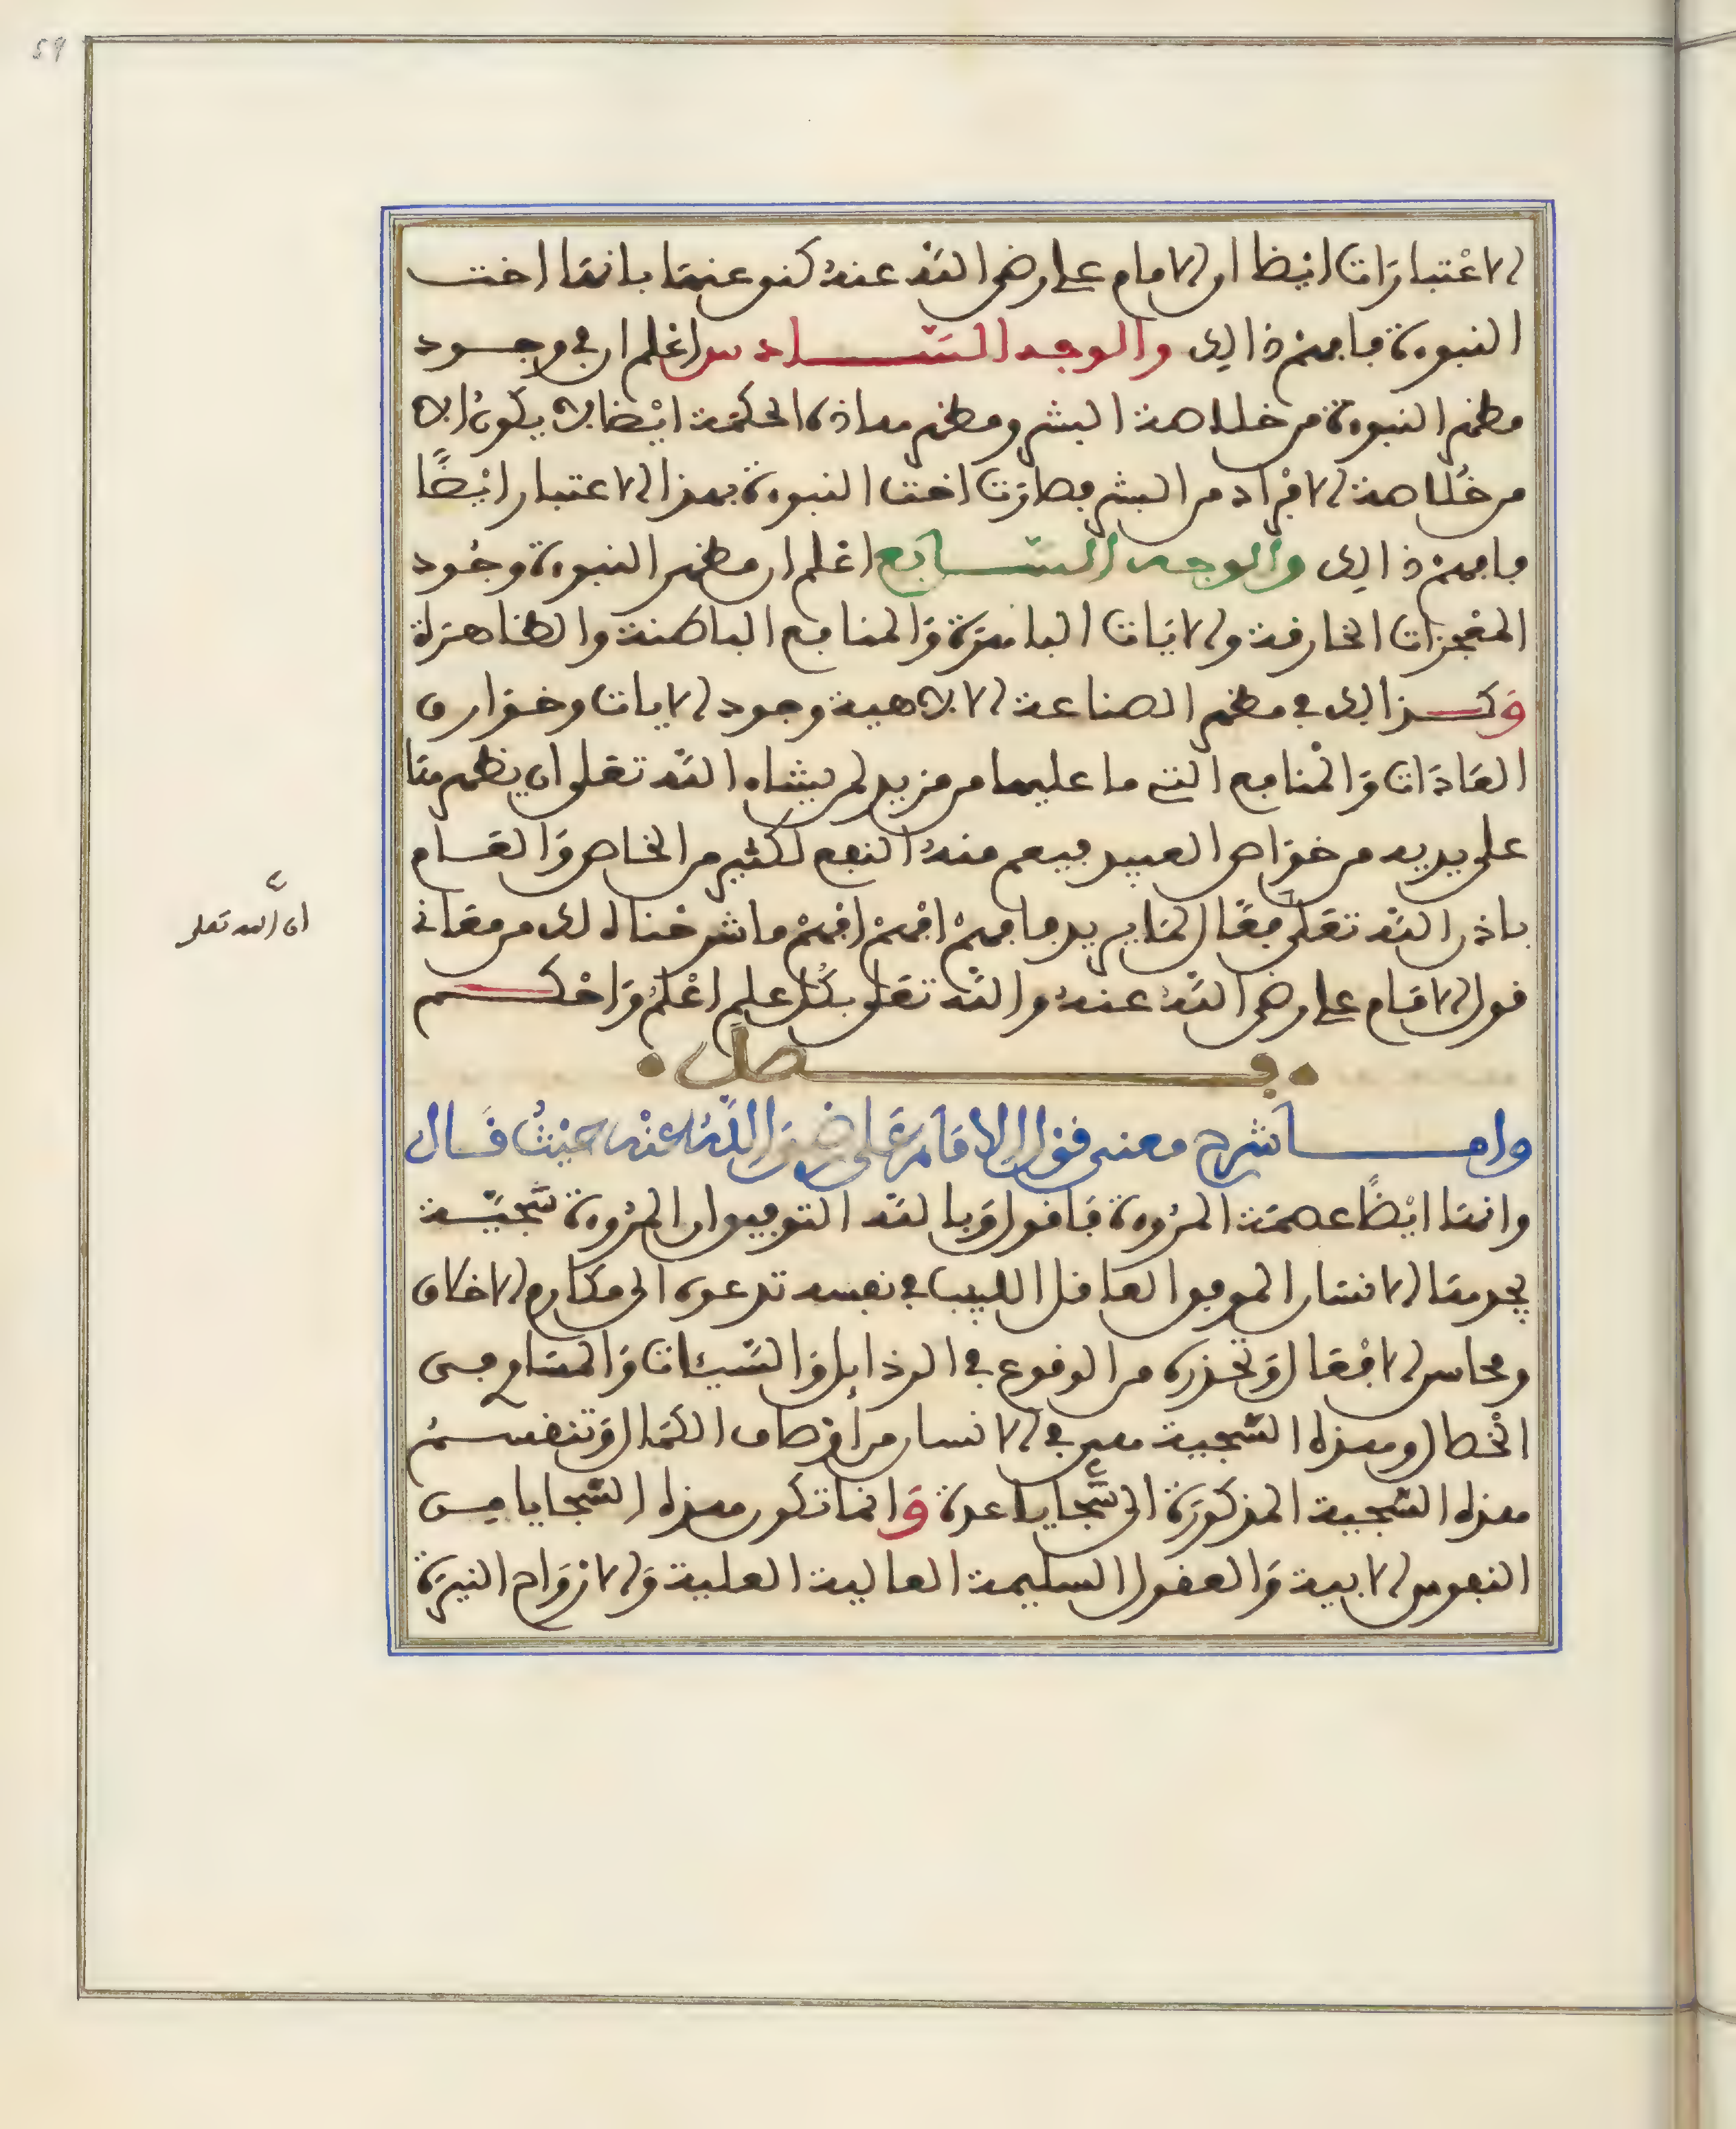 59
الاعتبارات ايضا ان الامام علي رضي الله عنه كنى عنها بانها اخت
النبوة فافهم ذالك والوجه السادس اعلم ان في وجود
مظهر النبوة من خلاصة البشر ومظهر هاذه الحكمة ايضا لا يكون الا
من خلاصة الافراد من البشر فصارت اخت النبوة بهذا الاعتبار ايضًا
فافهم ذالك والوجه السابع اعلم ان مظهر النبوة وجود
المعجزات الخارقة والايات الباهرة والمنافع الباطنة والظاهرة
وكذالك في مظهر الصناعة الالاهية وجود الايات وخوارق
العادات والمنافع التي ما عليها من مزيد لمن يشاء الله تعلى ان يظهرها
على يديه من خواص العبيد فيعم منه النفع لكثير من الخاص والعام
باذن الله تعلى فعال لما يريد فافهم افهم افهم ما شرحناه لك من معاني
قول الامام علي رضي الله عنه والله تعلى بكل علم اعلم واحكم
ان الله تعلى
فصل
واما شرح معنى قول الامام علي رضي الله عنه حيث قال
وانها ايضًا عصمة المروة فاقول وبالله التوفيق ان المروة سجية
يجدها الانسان الموفق العاقل اللبيب في نفسه تدعوه الى مكارم الاخلاق
ومحاسن الافعال وتحذره من الوقوع في الرذايل والسيئات والمساوي من
الخصال وهذه السجية هي في الانسان من اوصاف الكمال وتنقسم
هذه السجية المذكورة الى سجايا عدة وانما تكون هذه السجايا من
النفوس الابية والعقول السليمة العالية العلية والارواح النيرة